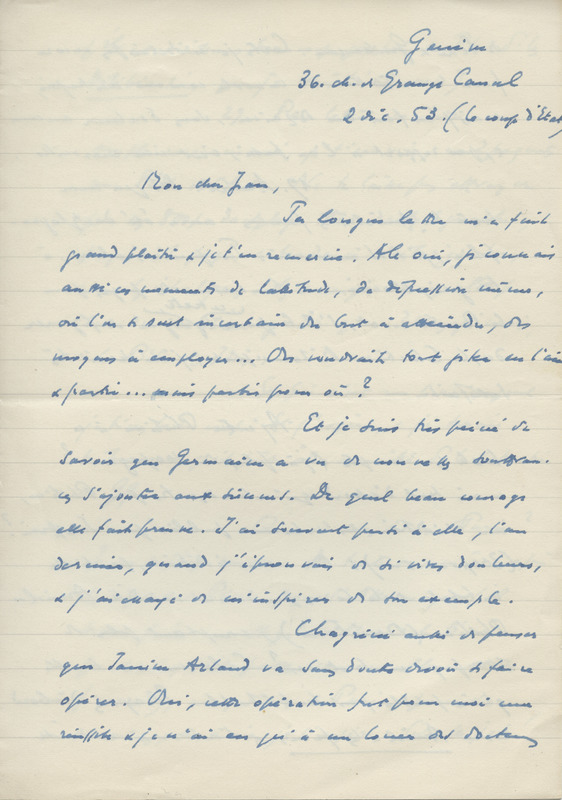 Genève
36. ch. de Grange Canal
2 déc. 53. (le coup d'Etat)
Mon cher Jean,
Ta longue lettre m'a fait
grand plaisir & je t'en remercie. Ah oui, je connais
aussi ces moments de lassitude, de dépression même,
où l'on se sent incertain du but à atteindre, des
moyens à employer... On voudrait tout ficher en l'air
& partir... mais partir pour où ?
Et je suis très peiné de
savoir que Germaine a vu de nouvelles souffran-
ces s'ajouter aux siennes. De quel beau courage
elle fait preuve. J'ai souvent pensé à elle, l'an
dernier, quand j'éprouvais de si vives douleurs,
& j'ai essayé de m'inspirer de son exemple.
Chagriné aussi de penser
que Janine Arland va sans doute devoir se faire
opérer. Oui, cette opération fut pour moi une
réussite & je n'ai eu qu'à me louer des docteurs